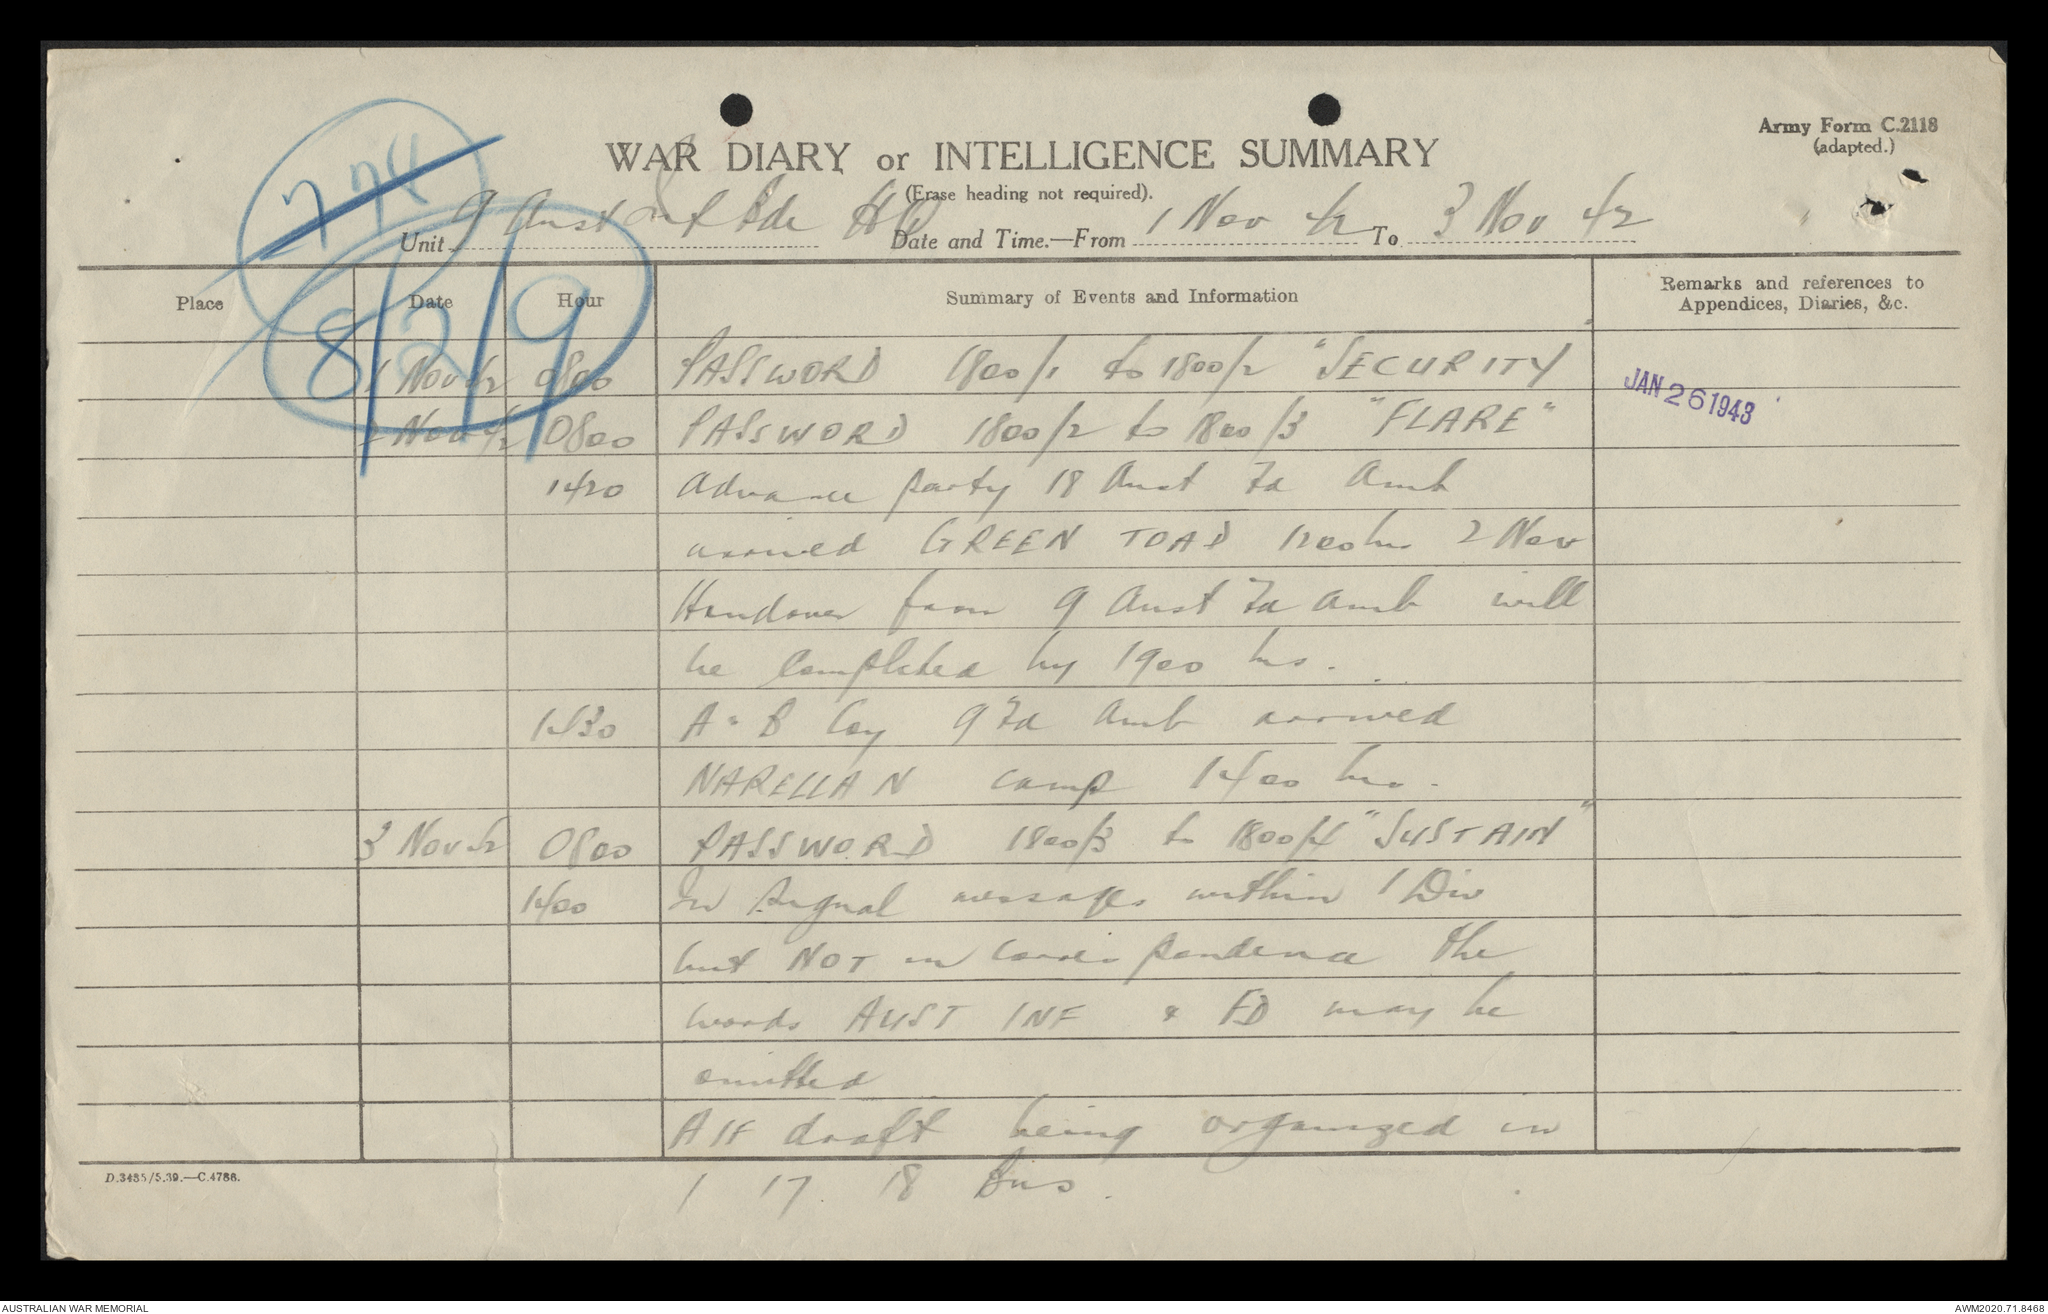 774
8/2/9
Army Form C.2118
(adapted.)
WAR DIARY or INTELLIGENCE SUMMARY
(Erase heading not required).
Unit 9 Aust Inf Bde HQ Date and Time.—From 1 Nov 42 To 3 Nov 42
Place Date Hour Summary of Events and Information Remarks and references to
Appendices, Diaries, &c.
1 Nov 42 0800 PASSWORD 1800/1 to 1800/2 "SECURITY
JAN 26 1943
2 Nov 42 0800 PASSWORD 1800/2 to 1800/3 "FLARE"
1420 Advance party 18 Aust Fd Amb
arrived GREEN TOAD 1200 hrs 2 Nov
Handover from 9 Aust Fd Amb will
be completed by 1900 hrs.
1430 A & B Coy 9 Fd Amb arrived
NARELLAN camp 1400 hrs.
3 Nov 42 0800 PASSWORD 1800/3 to 1800/4 "SUSTAIN"
1400 In Signal messages within 1 Div
but NOT in correspondence the
words AUST INF & FD may be
omitted
AIF draft being organized in
1 17 18 Bns.
D.3485/5.39.—C.4786.
AUSTRALIAN WAR MEMORIAL AWM2020.71.8468